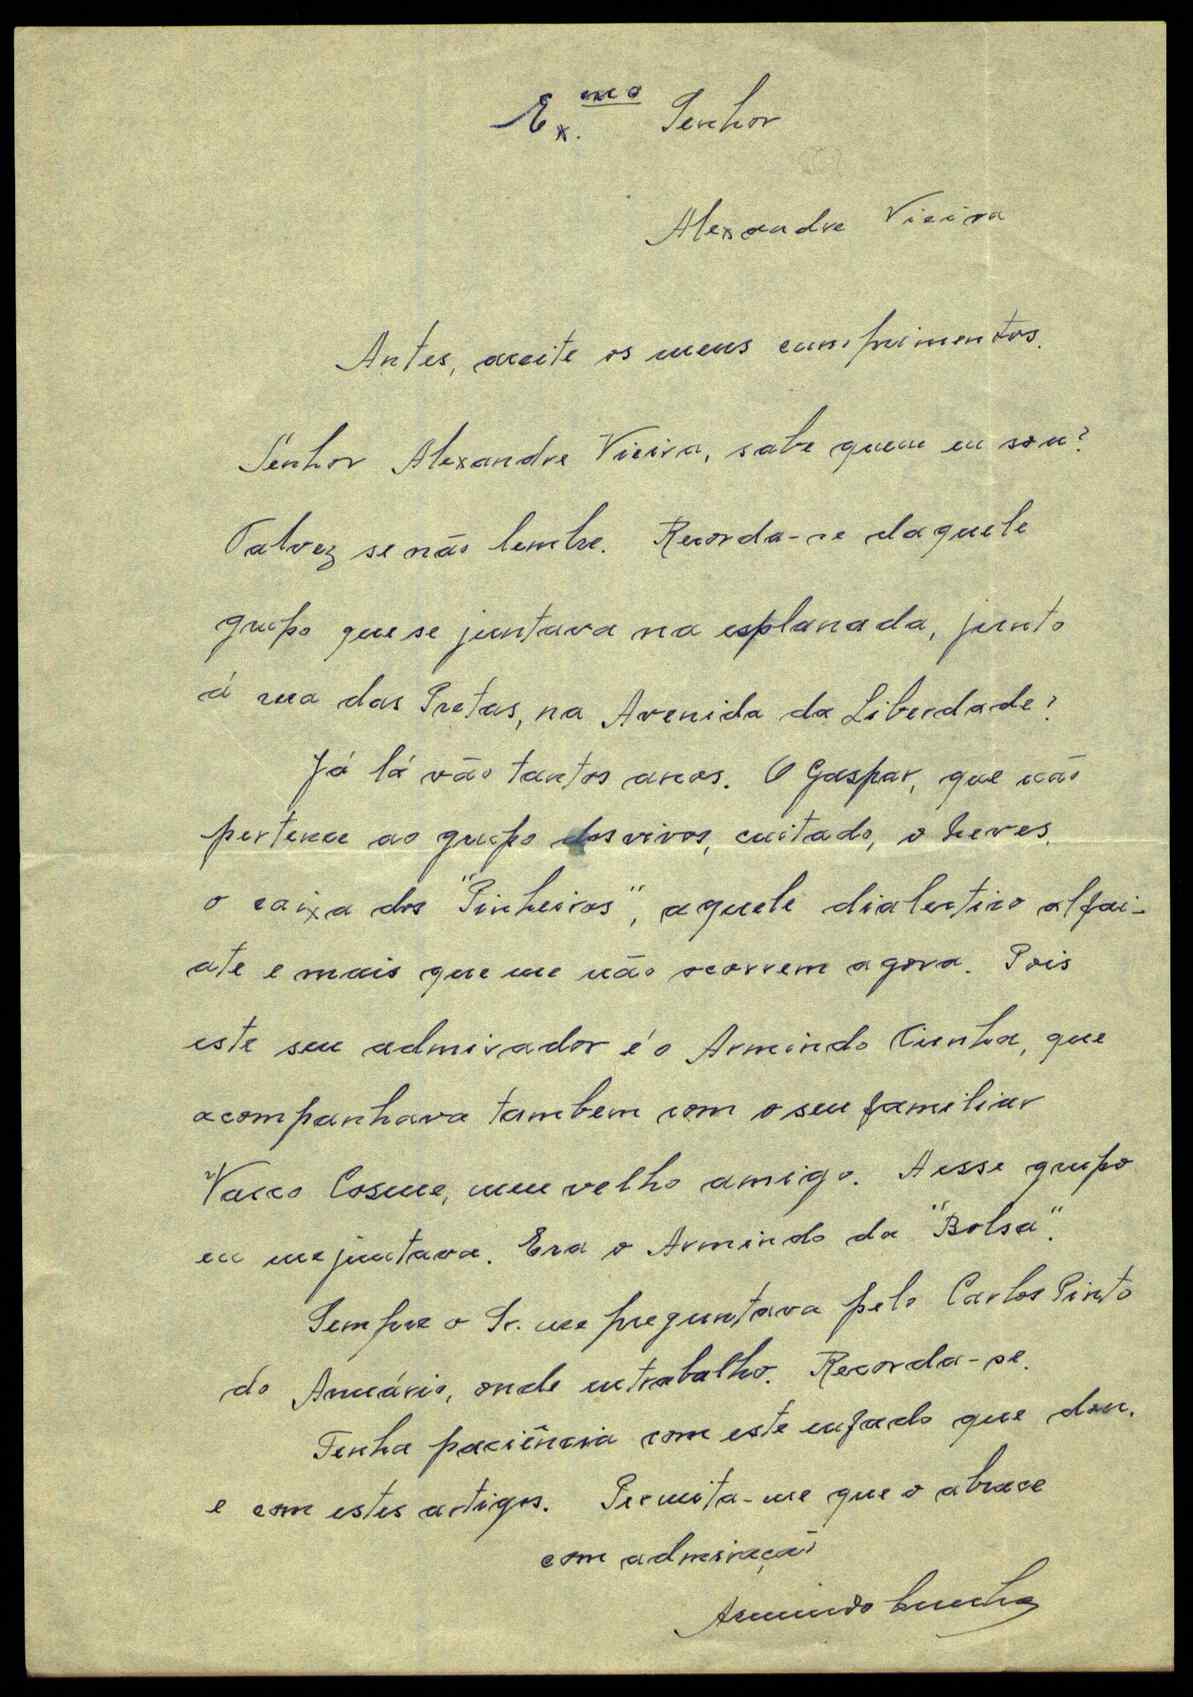 Ex.mo Senhor
Alexandre Vieira
Antes, aceite os meus cumprimentos.
Senhor Alexandre Vieira, sabe quem eu sou?
Talvez se não lembre. Recorda-se daquele
grupo que se juntava na esplanada, junto
á rua das Pretas, na Avenida da Liberdade?
Já lá vão tantos anos. O Gaspar, que não
pertence ao grupo dos vivos, cuitado, o Neves,
o caixa dos "Pinheiros", aquele dialectico alfai-
ate e mais que me não ocorrem agora. Pois
este seu admirador é o Armindo Cunha, que
acompanhava tambem com o seu familiar
Vasco Cosme, meu velho amigo. A esse grupo
eu me juntava. Era o Armindo da "Bolsa".
Sempre o Sr. me preguntava pelo Carlos Pinto
do Anuário, onde eu trabalho. Recorda-se.
Tenha paciência com este enfado que dou,
e com estes artigos. Permita-me que o abrace
com admiração
Armindo Cunha